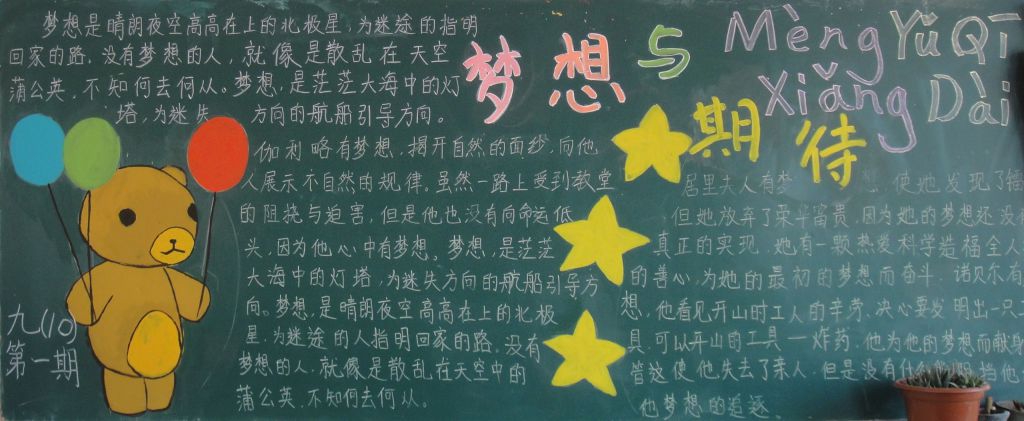 梦想是晴朗夜空高高在上的北极星,为迷途的指明
回家的路。没有梦想的人,就像是散乱在天空
蒲公英,不知何去何从。梦想,是茫茫大海中的灯
塔,为迷失方向的航船引导方向。
梦想与
期待
Mèng YǔQī
Xiǎng Dài
伽利略有梦想,揭开自然的面纱,向他
人展示不自然的规律。虽然一路上受到教堂
的阻挠与迫害,但是他也没有向命运低
头,因为他心中有梦想。梦想,是茫茫
大海中的灯塔,为迷失方向的航船引导方
向。梦想,是晴朗夜空高高在上的北极
星,为迷途的人指明回家的路。没有
梦想的人,就像是散乱在天空中的
蒲公英,不知何去何从。
居里夫人有梦想,使她发现了镭
但她放弃了荣华富贵,因为她的梦想还没有
真正的实现,她有一颗热爱科学造福全人
的善心,为她的最初的梦想而奋斗。诺贝尔有
想,他看见开山时工人的辛劳,决心要发明出一只
具可以开山的工具一炸药。他为他的梦想而献身
管这使他失去了亲人,但是没有什么挡他
他梦想的追逐。
九(10)
第一期